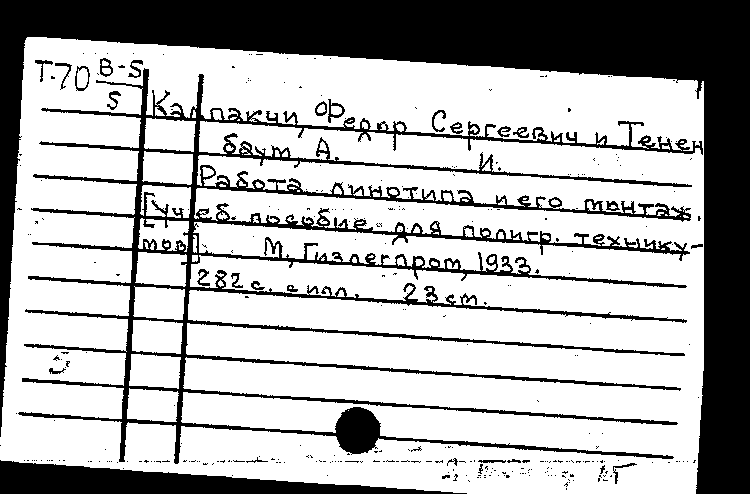 Т-70 В-5
5
Калпакчи, Федор Сергеевич и Тенен
баум, А. И.
Работа линотипа и его монтаж.
[Учеб. пособие для полигр. технику-
мов] М., Гизлегпром, 1933.
282 с. с илл. 23 см.